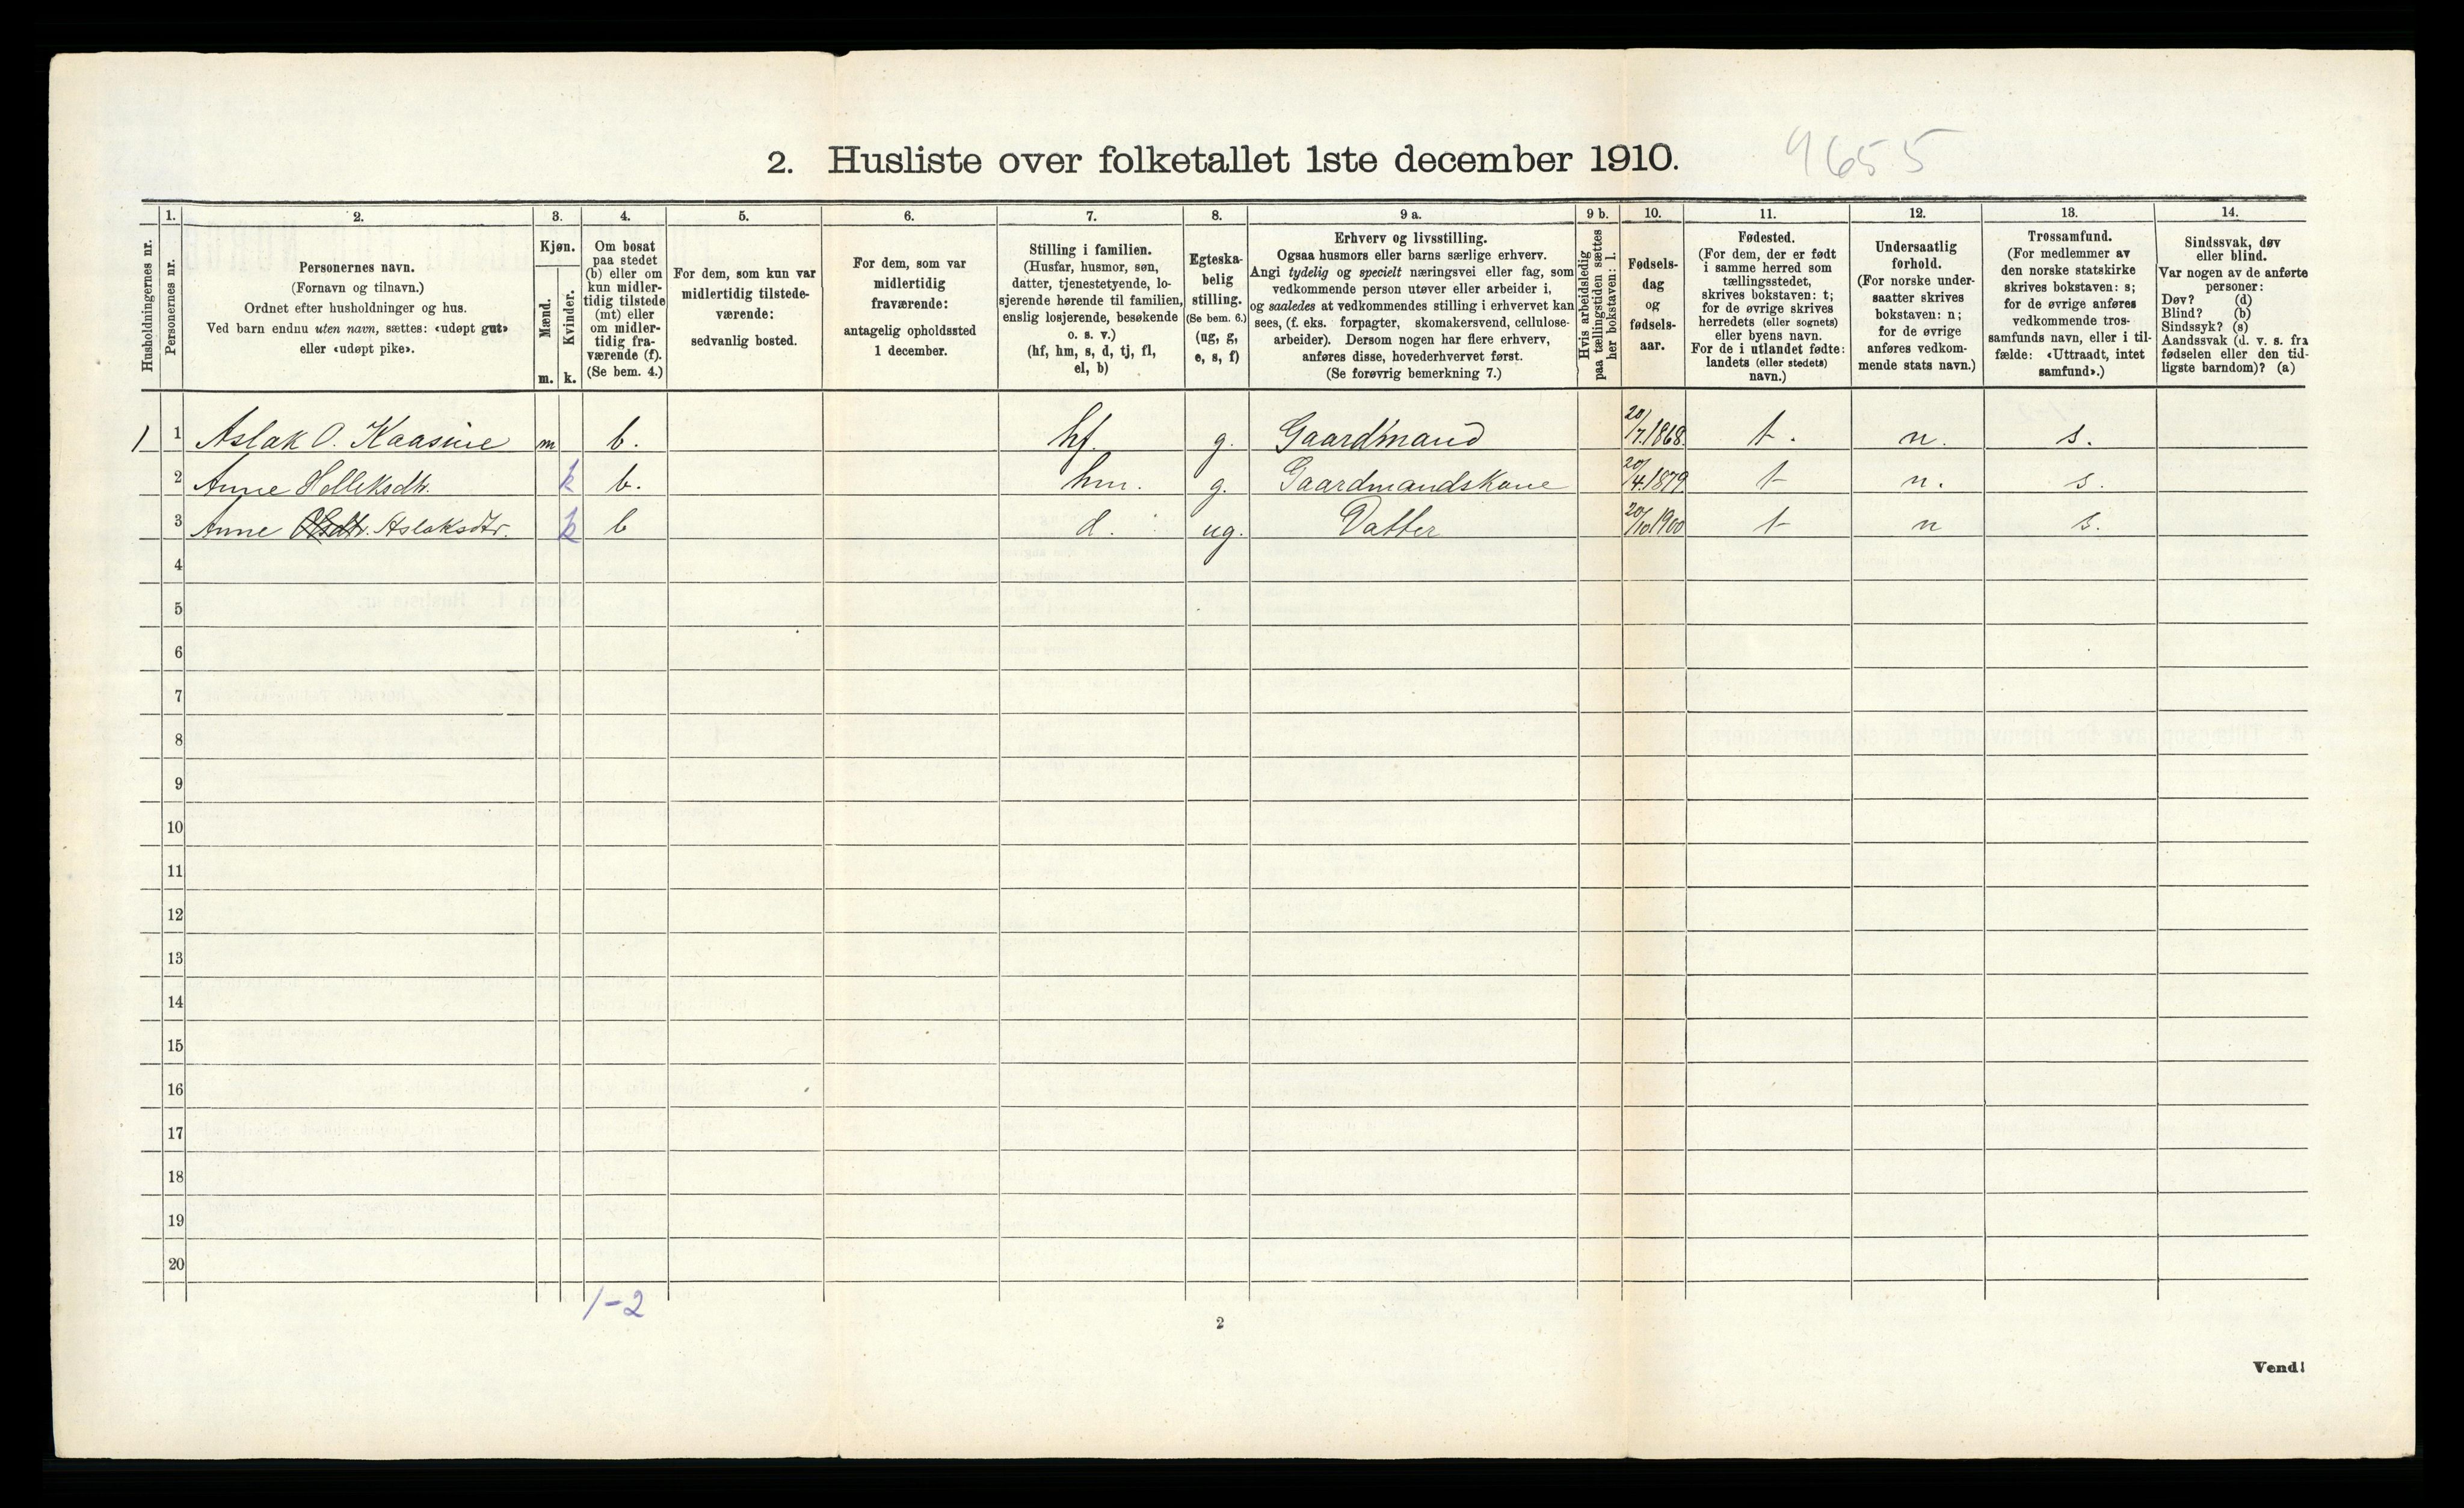 2. Husliste over folketallet 1ste december 1910.
9655
Husholdningernes nr.
1.
Personernes nr.
2.
Personernes navn.
(Fornavn og tilnavn.)
Ordnet efter husholdninger og hus.
Ved barn endnu uten navn, sættes: «udøpt gut»
eller «udøpt pike».
3.
Kjøn.
Mænd.
m.
Kvinder.
k.
4.
Om bosat
paa stedet
(b) eller om
kun midler-
tidig tilstede
(mt) eller
om midler-
tidig fra-
værende (f).
(Se bem. 4.)
5.
For dem, som kun var
midlertidig tilstede-
værende:
sedvanlig bosted.
6.
For dem, som var
midlertidig
fraværende:
antagelig opholdssted
1 december.
7.
Stilling i familien.
(Husfar, husmor, søn,
datter, tjenestetyende, lo-
sjerende hørende til familien,
enslig losjerende, besøkende
o. s. v.)
(hf, hm, s, d, tj, fl,
el, b)
8.
Egteska-
belig
stilling.
(Se bem. 6.)
(ug, g,
e, s, f)
9 a.
Erhverv og livsstilling.
Ogsaa husmors eller barns særlige erhverv.
Angi tydelig og specielt næringsvei eller fag, som
vedkommende person utøver eller arbeider i,
og saaledes at vedkommendes stilling i erhvervet kan
sees, (f. eks. forpagter, skomakersvend, cellulose-
arbeider). Dersom nogen har flere erhverv,
anføres disse, hovederhvervet først.
(Se forøvrig bemerkning 7.)
9 b.
Hvis arbeidsledig
paa tællingstiden sættes
her bokstaven: l.
10.
Fødsels-
dag
og
fødsels-
aar.
11.
Fødested.
(For dem, der er født
i samme herred som
tællingsstedet,
skrives bokstaven: t;
for de øvrige skrives
herredets (eller sognets)
eller byens navn.
For de i utlandet fødte:
landets (eller stedets)
navn.)
12.
Undersaatlig
forhold.
(For norske under-
saatter skrives
bokstaven: n;
for de øvrige
anføres vedkom-
mende stats navn.)
13.
Trossamfund.
(For medlemmer av
den norske statskirke
skrives bokstaven: s;
for de øvrige anføres
vedkommende tros-
samfunds navn, eller i til-
fælde: «Uttraadt, intet
samfund».)
14.
Sindssvak, døv
eller blind.
Var nogen av de anførte
personer:
Døv? (d)
Blind? (b)
Sindssyk? (s)
Aandssvak (d. v. s. fra
fødselen eller den tid-
ligste barndom)? (a)
1 1 Aslak O. Kaasine m b. hf. g. Gaardmand 20/7.1868. t. n. s.
2 Anne Hølleksdtr. k b. hm. g. Gaardmandskone 20/4.1879 t n. s.
3 Anne Aslaksdtr. k b d. ug. Datter 20/10 1900 t n s.
4
5
6
7
8
9
10
11
12
13
14
15
16
17
18
19
20
1-2
2
Vend!